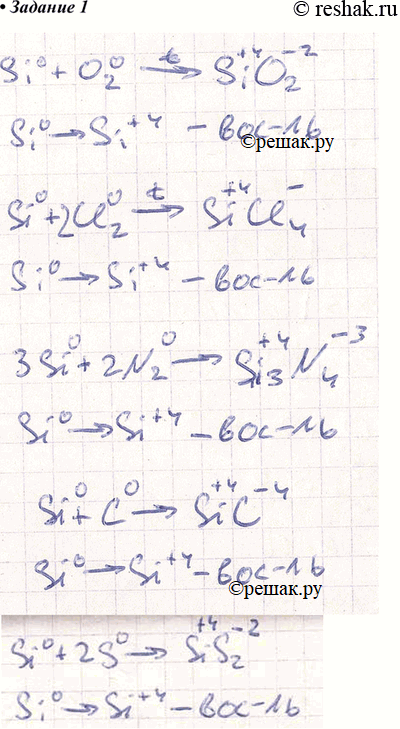 © reshak.ru
• Задание 1
Si⁰ + O₂⁰ —t→ Si⁺⁴O₂⁻²
Si⁰ → Si⁺⁴ – вос-ль
©решак.ру
Si⁰ + 2Cl₂⁰ —t→ Si⁺⁴Cl₄⁻
Si⁰ → Si⁺⁴ – вос-ль
3Si⁰ + 2N₂⁰ → Si₃⁺⁴N₄⁻³
Si⁰ → Si⁺⁴ – вос-ль
Si⁰ + C⁰ → Si⁺⁴C⁻⁴
Si⁰ → Si⁺⁴ – вос-ль
©решак.ру
Si⁰ + 2S⁰ → Si⁺⁴S₂⁻²
Si⁰ → Si⁺⁴ – вос-ль